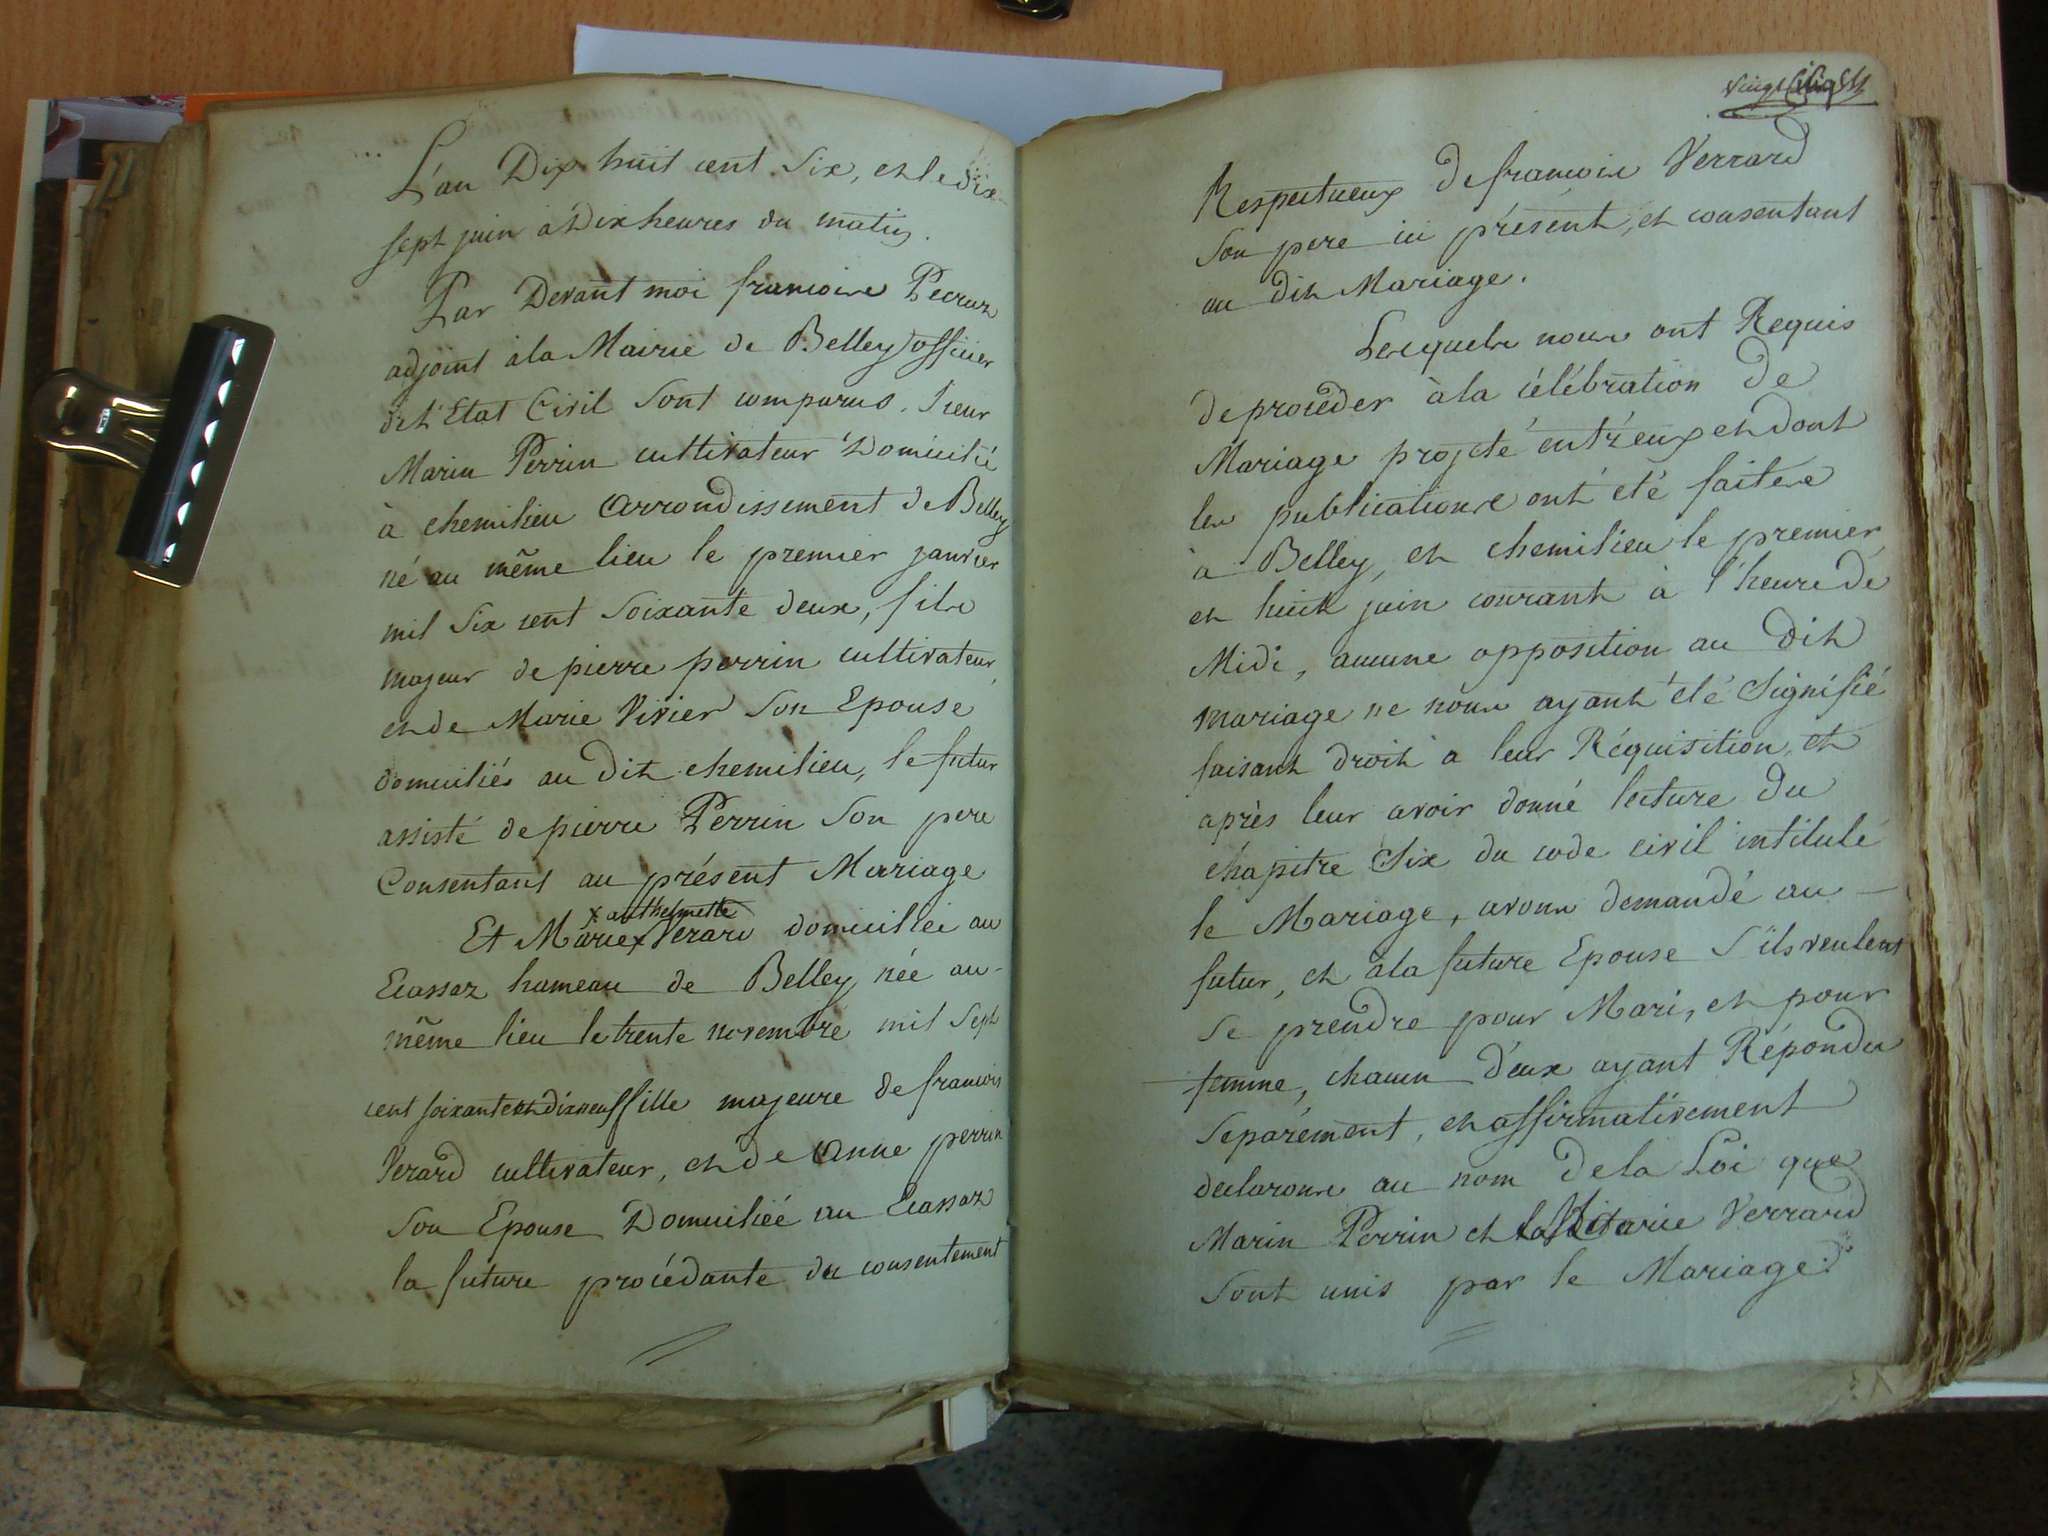 L'an Dix huit cent Six, et le dix
sept juin à Dix heures du matin.
Par Devant moi francois Pecruz
adjoint à la Mairie de Belley officier
de l'Etat Civil Sont comparus. Sieur
Marin Perrin cultivateur Domicilié
à chemilieu arrondissement de Belley
né au même lieu le premier janvier
mil Six cent Soixante deux, fils
majeur de pierre perrin cultivateur,
et de Marie Vivier Son Epouse
domiciliés au dit chemilieu, le futur
assisté de pierre Perrin Son pere
Consentant au présent Mariage
x anthelmette
Et Marie x Verard domiciliée au
Ecassaz hameau de Belley née au-
même lieu le trente novembre mil Sept
cent soixante et dix neuf fille majeure de francois
Verard cultivateur, et de anne perrin
Son Epouse Domiciliée au Ecassaz
la future procédante du consentement
vingt
Respectueux de francois Verrard
Son pere ici présent, et consentant
au dit Mariage.
Lesquels nous ont Requis
de procéder à la célébration de
Mariage projeté entr'eux et dont
les publications ont été faites
à Belley, et chemilieu le premier
et huit juin courant à l'heure de
Midi, aucune opposition au dit
mariage ne nous ayant été Signifié
faisant droit a leur Réquisition, et
après leur avoir donné lecture du
chapitre Six du code civil intitulé
le Mariage, avons demandé au -
futur, et à la future Epouse S'ils veulent
se prendre pour Mari, et pour
femme, chacun d'eux ayant Répondu
Séparément, et affirmativement
declarons au nom de la Loi que
Marin Perrin et Marie Verrard
Sont unis par le Mariage.